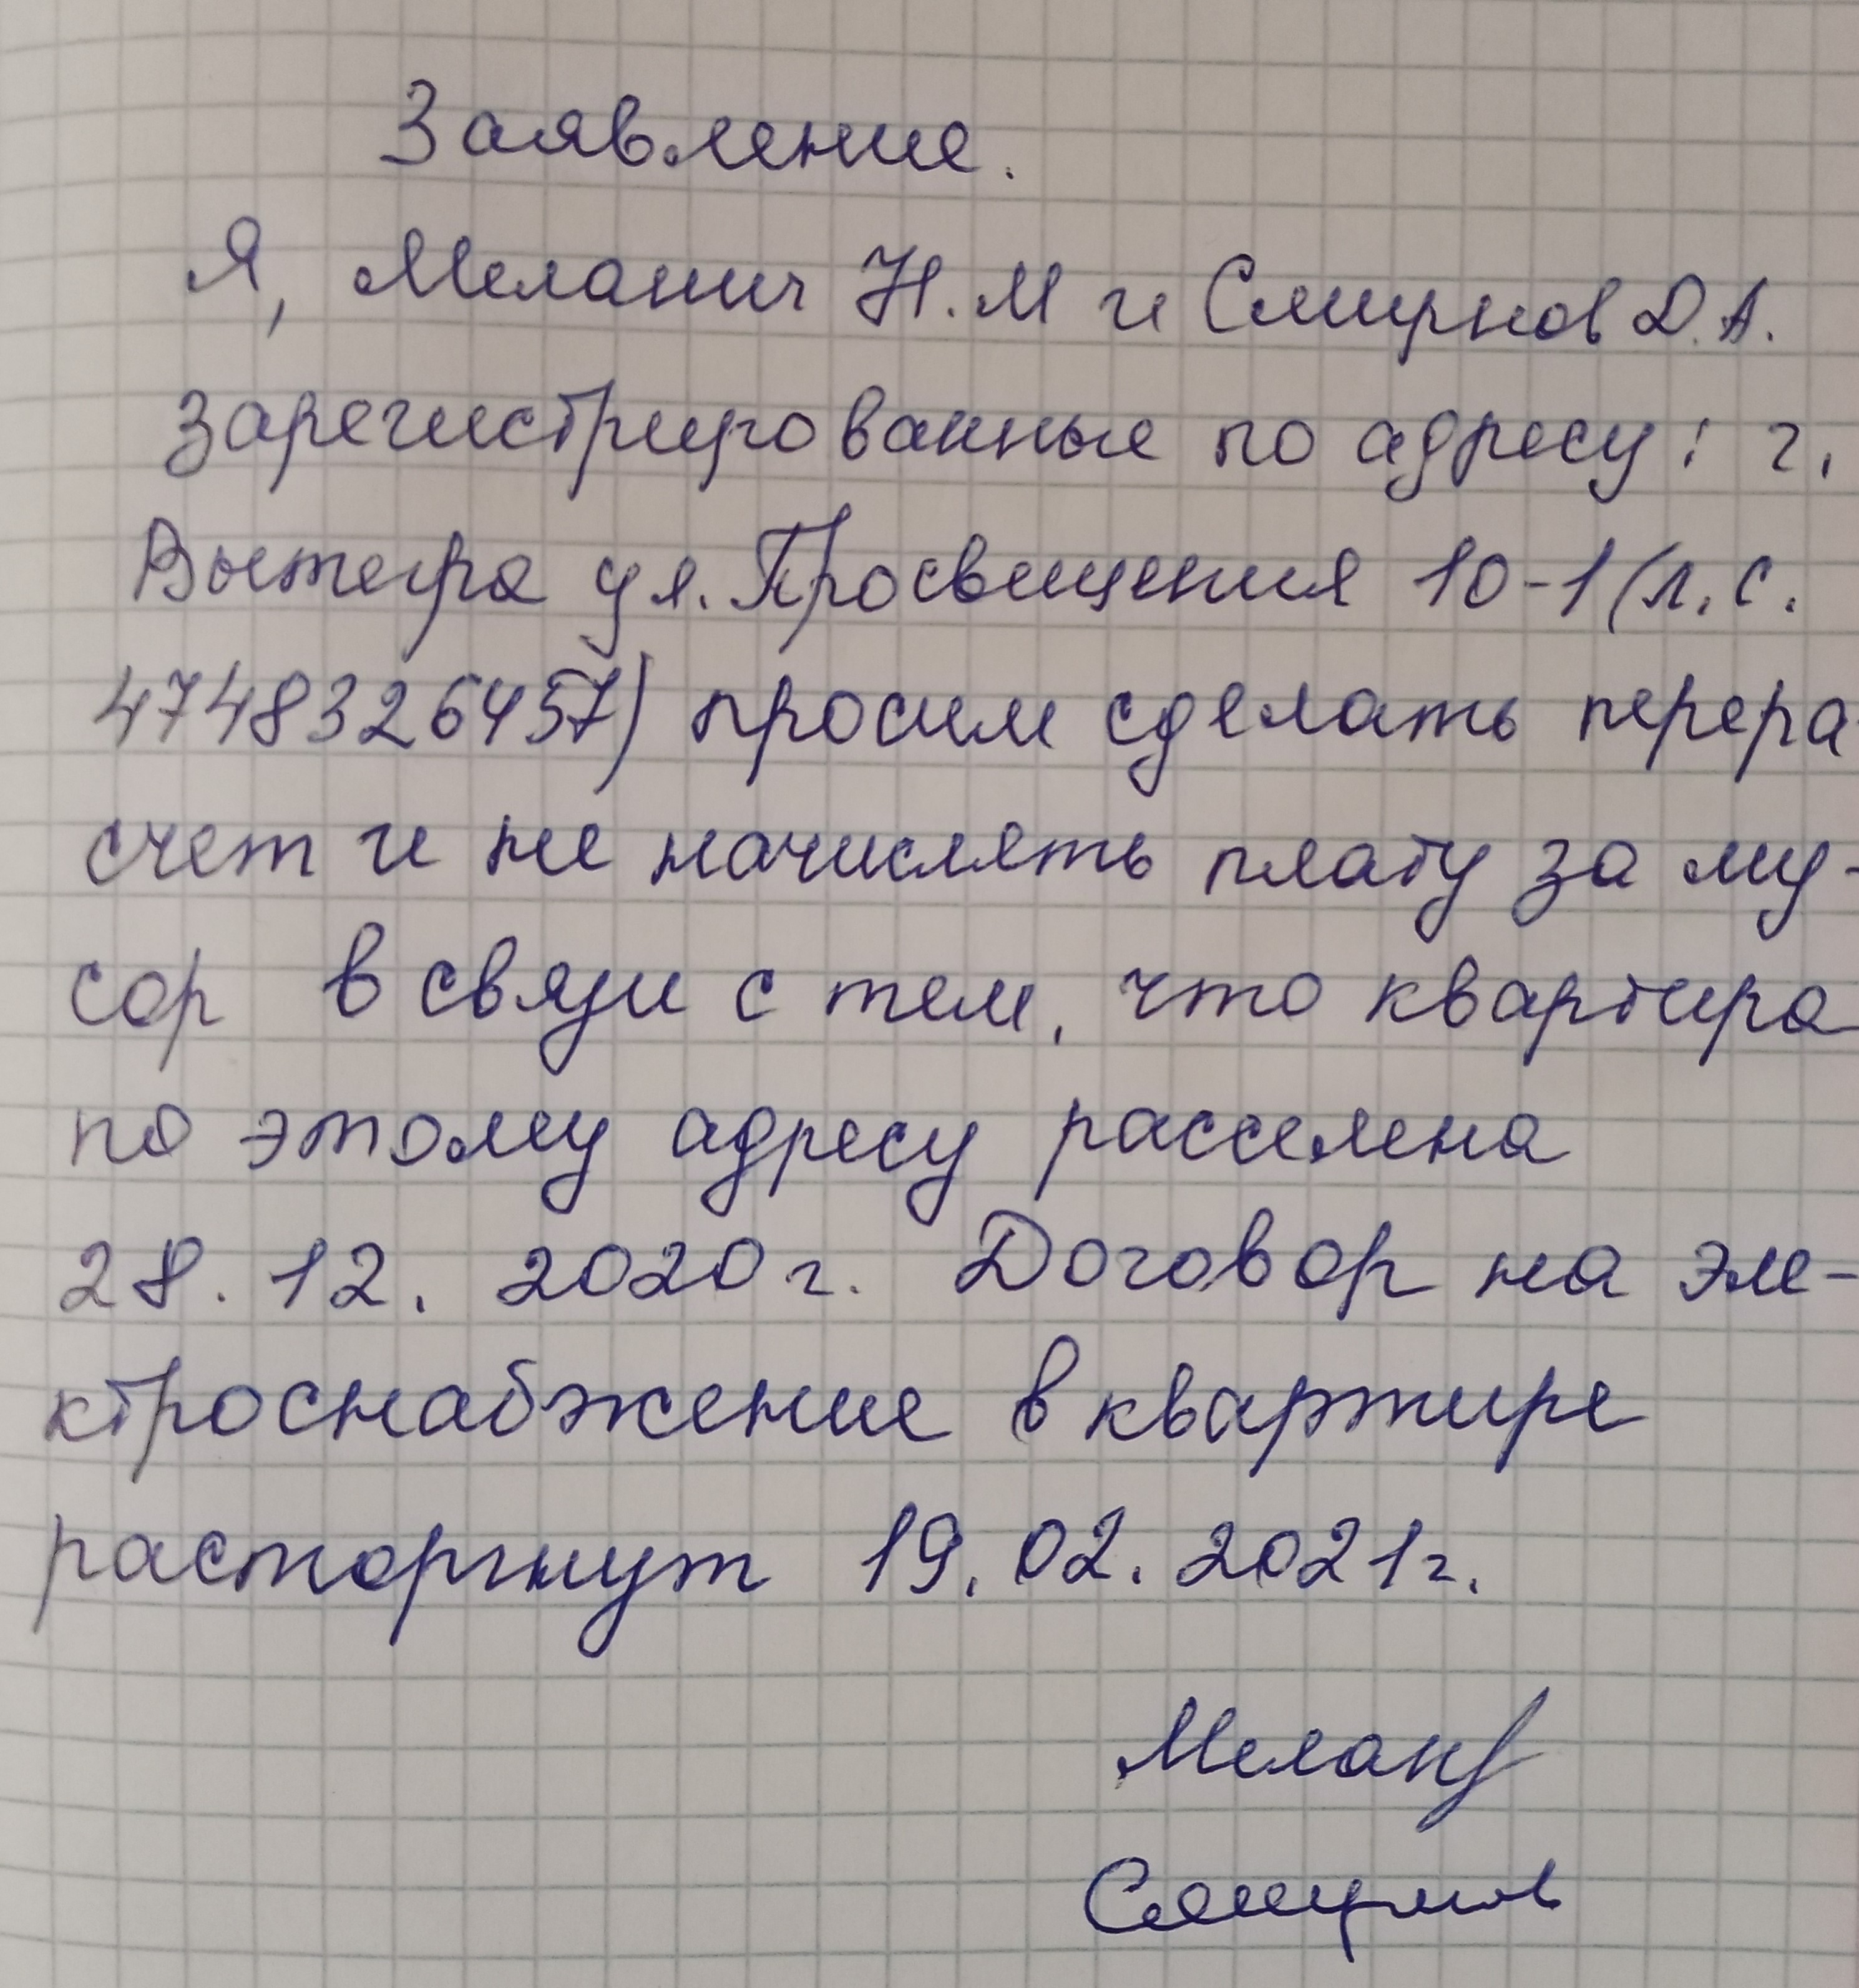 Заявление.
Я, Меланич Н.М и Смирнов Д.А.
зарегистрированные по адресу: г.
Вытегра ул. Просвещения 10-1 (л.с.
47483326457) просим сделать перера
счет и не начислять плату за му-
сор в связи с тем, что квартира
по этому адресу расселена
28.12.2020г. Договор на эле-
ктроснабжение в квартире
расторгнут 19.02.2021г.
Мелан
Смирнов